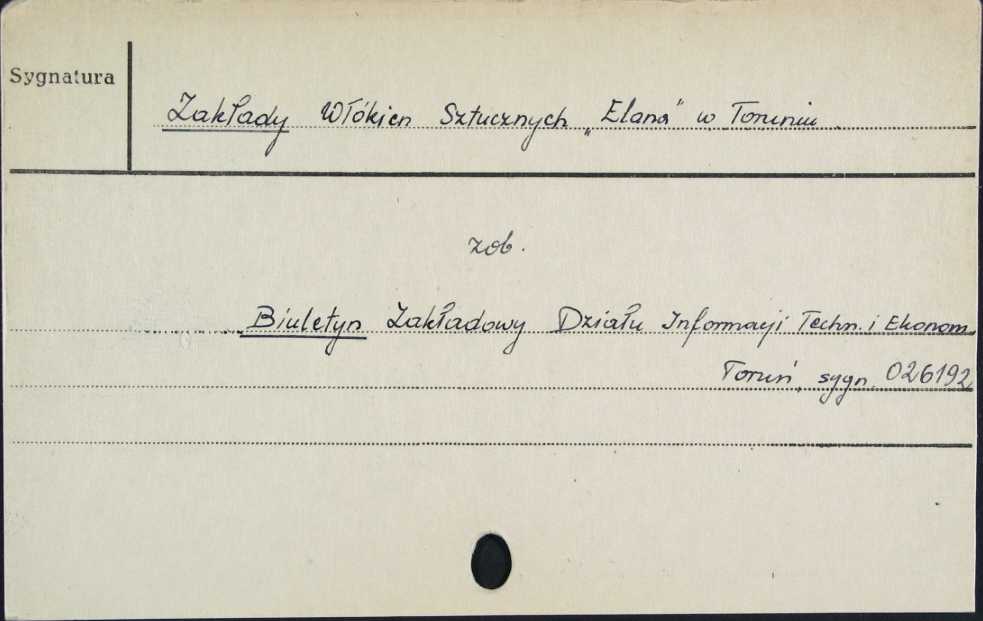 Sygnatura
Zakłady Włókien Sztucznych „Elana” w Toruniu
zob.
Biuletyn Zakładowy Działu Informacji Techn. i Ekonom.
Toruń, sygn. 026192